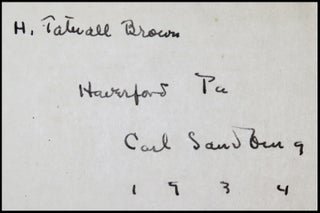 H. Tatnall Brown
Haverford Pa
Carl Sandburg
1934